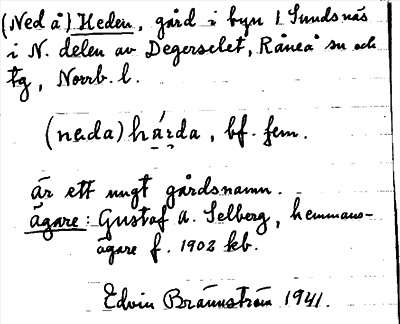 (Ned å) Heden, gård i byn 1 Sundsnäs
i N. delen av Degerselet, Råneå sn och
tg, Norrb. l.
(neda) hárda, bf. fem.
är ett ungt gårdsnamn.
ägare: Gustaf A. Selberg, hemmans-
ägare f. 1902 kb.
Edvin Brännström 1941.